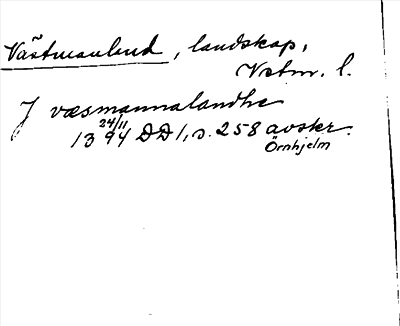 Västmanland, landskap,
Vstm. l.
J væsmannalandhe
24/11
1394 DD 1, s. 258 avskr.
Örnhjelm